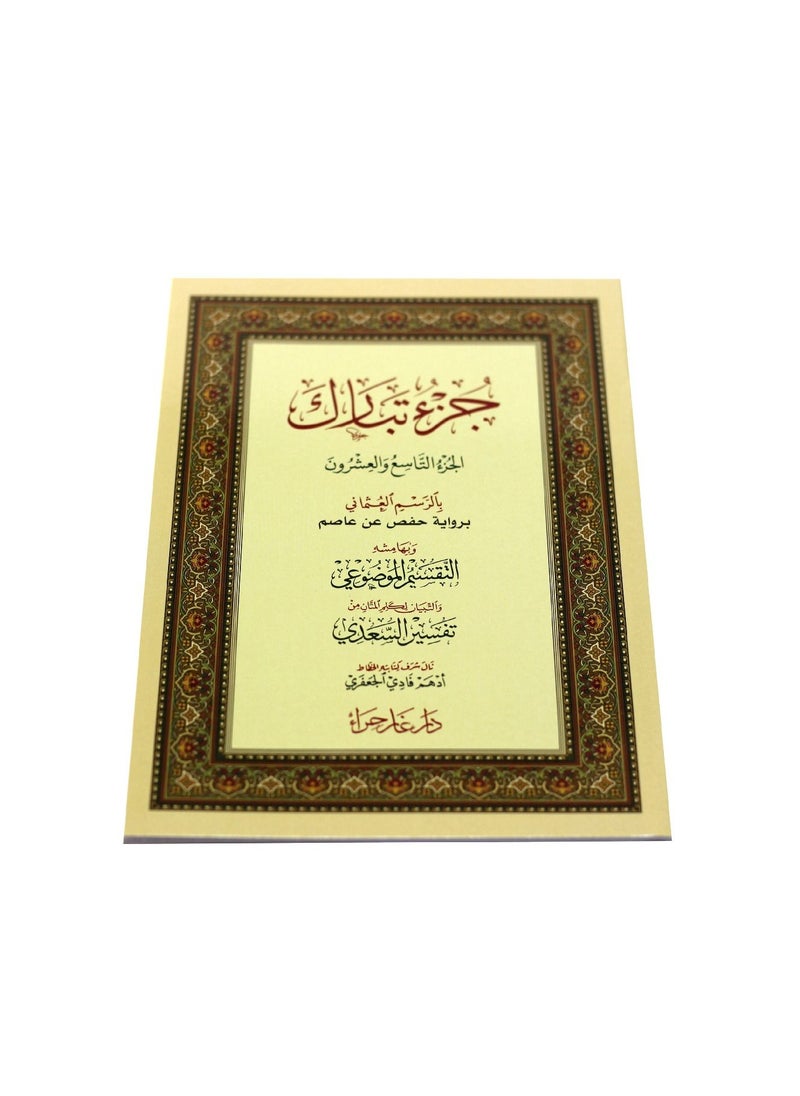 جُزْءُ تَبَارَكَ
الجُزْءُ التَّاسِعُ وَالعِشْرُونَ
بِالرَّسْمِ العُثْمَانِي
برواية حفص عن عاصم
وَبِهَامِشِهِ
التَّقْسِيمُ المَوْضُوعِيُّ
وَالتِّبْيَانُ لِكَلِمِ المَنَّانِ مِنْ
تَفْسِيرِ السَّعْدِي
نَالَ شَرَفَ كِتَابَتِهِ الخَطَّاط
أَدْهَم فَادِي الجَعْفَرِي
دَارُ غَارِ حِرَاء